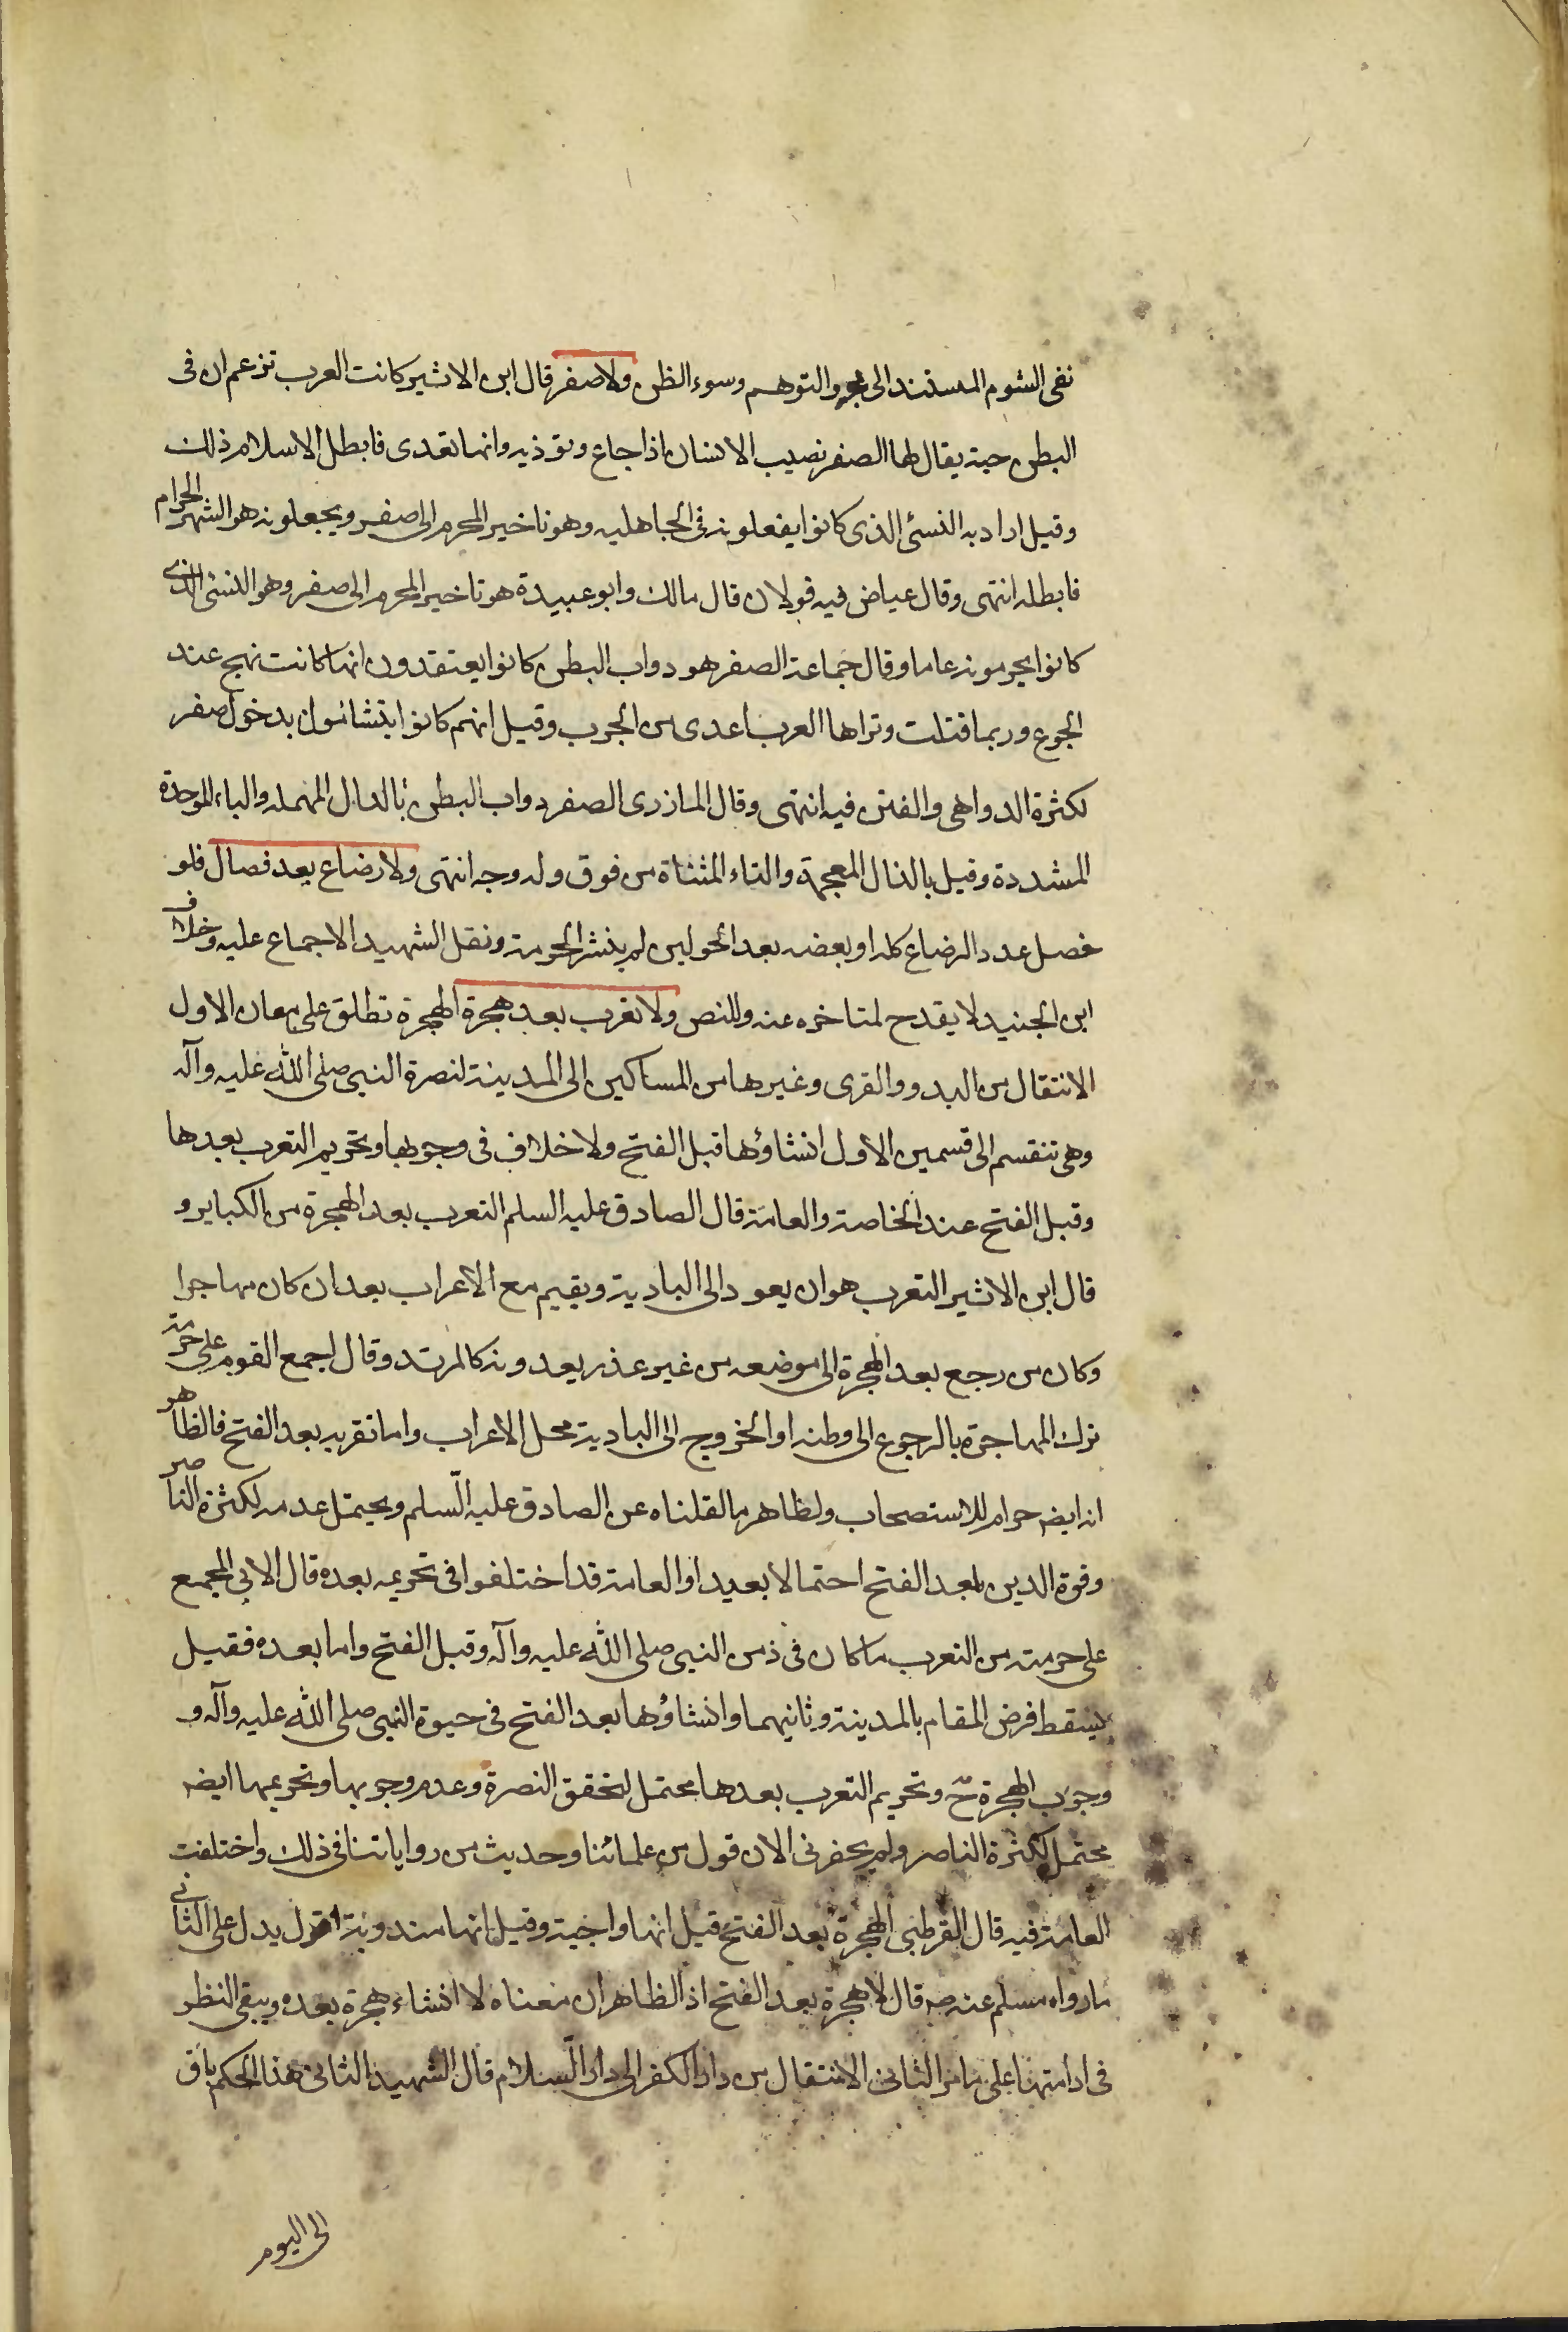 نفى الشوم المستند الى مجرد التوهم وسوء الظن ولا صفر قال ابن الاثير كانت العرب تزعم ان فى
البطن حية يقال لها الصفر تصيب الانسان اذا جاع وتوذيه وانها تعدى فابطل الاسلام ذلك
وقيل اراد به النسئ الذى كانوا يفعلونه فى الجاهليه وهو تاخير المحرم الى صفر ويجعلونه هو الشهر الحرام
فابطله انتهى وقال عياض فيه قولان قال مالك وابو عبيدة هو تاخير المحرم الى صفر وهو النسئ الذى
كانوا يحرمونه عاما وقال جماعة الصفر هو دواب البطن كانوا يعتقدون انها كانت تهيج عند
الجوع وربما قتلت وتراها العرب اعدى من الجرب وقيل انهم كانوا يتشائمون بدخول صفر
لكثرة الدواهى والفتن فيه انتهى وقال المازرى الصفر دواب البطن بالدال المهمله والباء الموحدة
المشددة وقيل بالذال المعجمة والتاء المثناة من فوق وله وجه انتهى ولا رضاع بعد فصال فلو
حصل عدد الرضاع كله او بعضه بعد الحولين لم ينشر الحرمة ونقل الشهيد الاجماع عليه وخلاف
ابن الجنيد لا يقدح لمتاخره عنه وللنص ولا تعرب بعد هجرة الهجرة تطلق على معان الاول
الانتقال من البدو والقرى وغيرها من المساكين الى المدينة لنصرة النبى صلى الله عليه وآله
وهى تنقسم الى قسمين الاول انشاؤها قبل الفتح ولا خلاف فى وجوبها وتحريم التعرب بعدها
وقبل الفتح عند الخاصة والعامة قال الصادق عليه السلم التعرب بعد الهجرة من الكباير و
قال ابن الاثير التعرب هو ان يعود الى البادية ويقيم مع الاعراب بعد ان كان مهاجرا
وكان من رجع بعد الهجرة الى موضعه من غير عذر يعدونه كالمرتد وقال اجمع القوم على حرمة
ترك المهاجرة بالرجوع الى وطنه او الخروج الى البادية محل الاعراب واما تقربه بعد الفتح فالظاهر
انه ايضه حرام للاستصحاب ولظاهر ما نقلناه عن الصادق عليه السلم ويحتمل عدمه لكثرة الناصر
وقوة الدين بعد الفتح احتمالا بعيدا والعامة قد اختلفوا فى تحريمه بعده قال الابى المجمع
على حرمته من التعرب ما كان فى زمن النبى صلى الله عليه وآله وقبل الفتح واما بعده فقيل
يسقط فرض المقام بالمدينة وثانيهما وانشاؤها بعد الفتح فى حيوة النبى صلى الله عليه وآله و
وجوب الهجرة ح وتحريم التعرب بعدها محتمل لتحقق النصرة وعدم وجوبها وتحريمها ايضه
محتمل لكثرة الناصر ولم يحضرنى الان قول من علمائنا وحديث من رواياتنا فى ذلك واختلفت
العامة فيه قال القرطبى الهجرة بعد الفتح قيل انها واجبة وقيل انها مندوبة اقول يدل على الثانى
ما رواه مسلم عنه صه قال لا هجرة بعد الفتح اذ الظاهر ان معناه لا انشاء هجرة بعده ويبقى النظر
فى ادامتها على ما مر الثانى الانتقال من دار الكفر الى دار السلام قال الشهيد الثانى هذا الحكم باق
الى اليوم